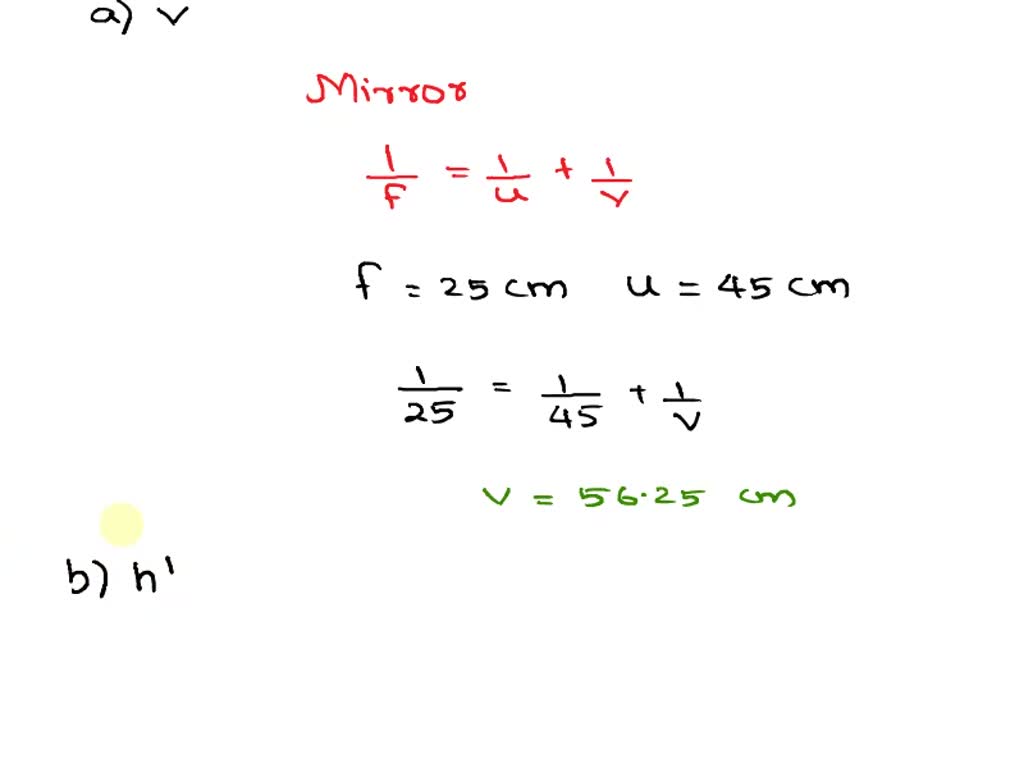 a) v
Mirror
1/f = 1/u + 1/v
f = 25 cm u = 45 cm
1/25 = 1/45 + 1/v
v = 56.25 cm
b) h'